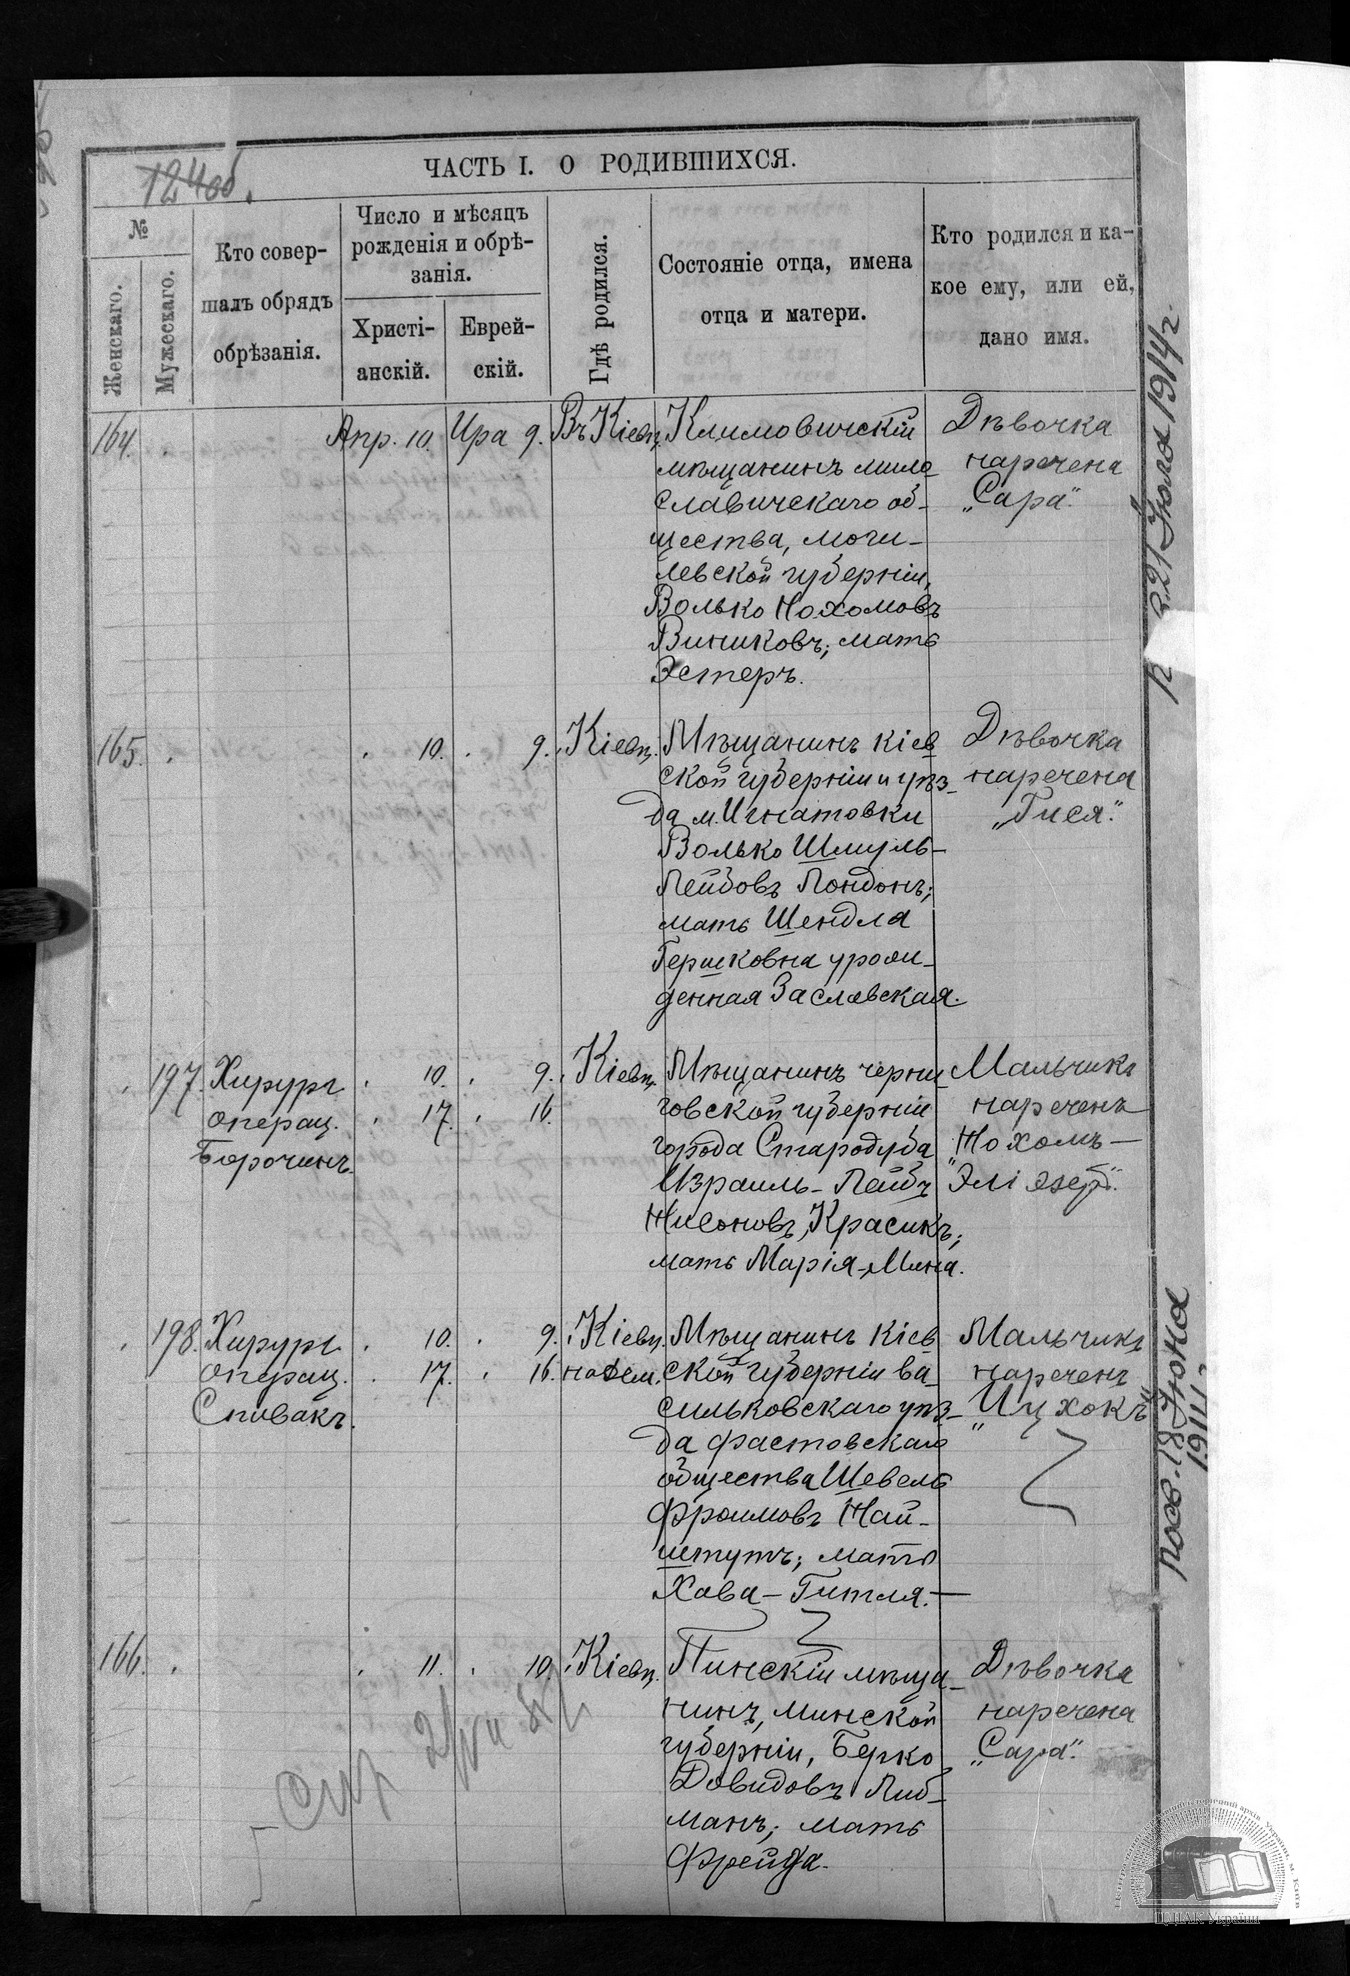 124об.
ЧАСТЬ I. О РОДИВШИХСЯ.
№
Женскаго.
Мужескаго.
Кто совер-
шалъ обрядъ
обрѣзанія.
Число и мѣсяцъ
рожденія и обрѣ-
занія.
Христі-
анскій.
Еврей-
скій.
Гдѣ родился.
Состояніе отца, имена
отца и матери.
Кто родился и ка-
кое ему, или ей,
дано имя.
164. Апр. 10. Ира 9. Въ Кіевѣ
Климовичскій
мѣщанинъ мило
славичскаго об-
щества, моги-
левской губерніи,
Волько Нохомовъ
Виниковъ; мать
Эстеръ.
Дѣвочка
наречена
„Сара".
165. 10. 9. Кіевѣ.
Мѣщанинъ кіев
ской губерніи и уѣз-
да м. Игнатовки
Волько Шмуль-
Лейбовъ Лондонъ;
мать Шендла
Гершковна урож-
денная Заславская.
Дѣвочка
наречена
„Гися".
197. Хирургъ
операц.
Борочинъ.
10. 9. Кіевѣ.
17. 16.
Мѣщанинъ черни
говской губерніи
города Стародуба
Израиль-Лейбъ
Нисоновъ Красикъ;
мать Марія-Мина.
Мальчикъ
нареченъ
„Нохомъ-
Эліэзеръ".
198. Хирургъ
операц.
Спивакъ.
10. 9. Кіевѣ.
17. 16. на Дем.
Мѣщанинъ кіев
ской губерніи ва-
сильковскаго уѣз-
да фастовскаго
общества Шевель
Фроимовъ Най-
штутъ; мать
Хава-Гитля.
Мальчикъ
нареченъ
„Ицхокъ"
166. 11. 10. Кіевѣ.
Пинскій мѣща-
нинъ, минской
губерніи, Берко
Довидовъ Либ-
манъ; мать
Фрейда.
Дѣвочка
наречена
„Сара".
21 Іюля 1914 г.
18 Іюня
ЦДІАК України